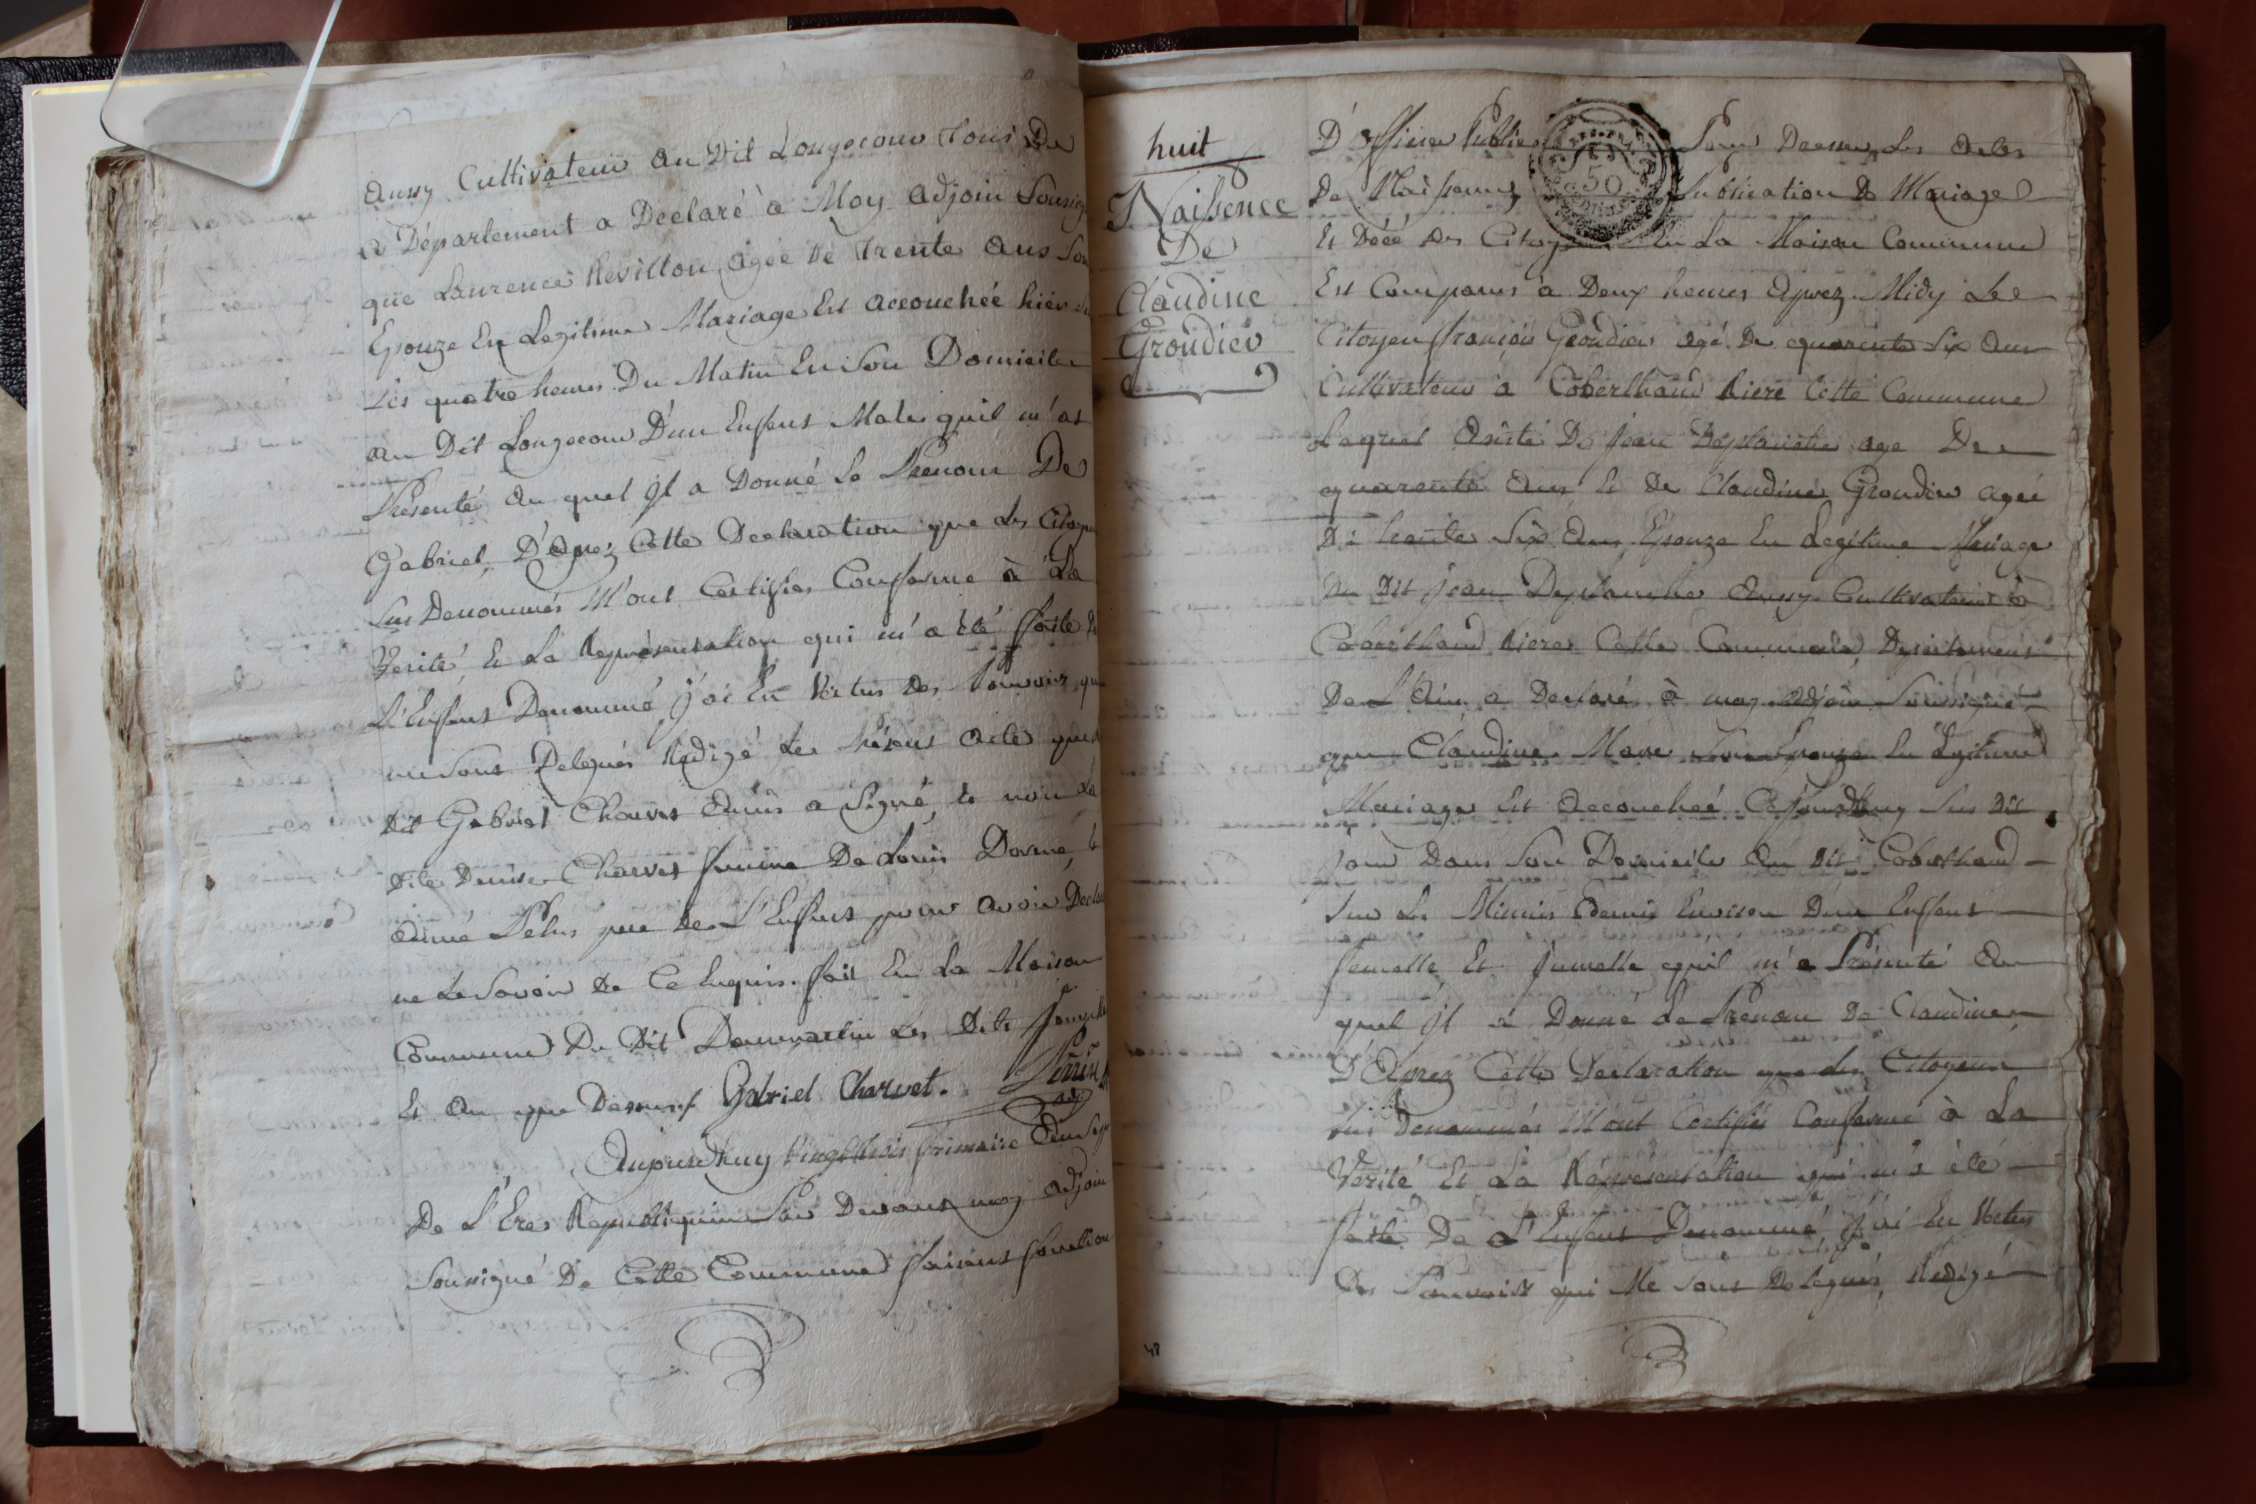 Aussy Cultivateur au Dit Longecour tous De
ce Département a Declaré à Moy adjoin Sousigné
que Laurence Revillon, agée de trente ans Son
Epouze En Legitime Mariage Est accouchée hièr
Lès quatre heures Du Matin En Son Domicile
au Dit Longecour D'un Enfant Male quil m'at
Présenté au quel jl a Donné Le Prenom De
Gabriel, D'aprez Cette Declaration que Les Citoyens
Sus Denommés M'ont Certifiés Conforme à La
Verité, Et La Représentation qui m'a été faite de
L'Enfant Denommé j'ai En Vertus Des Pouvoirs qui
me Sont Delegués Redigé Le Présent acte que
Dit Gabriel Charvet a Signé, et non La
dite Denise Charvet femme De Louis
Pelus pere de L'Enfant pour avoir Declaré
ne Le Savoir De Ce Enquis. fait En La Maison
Commune Du Dit Dommartin Les Dits jour
Et An que Dessus. Gabriel Charvet.
Aujourdhuy Vingt trois frimaire
De L'Ere Republiquaine Par Devant moy adjoin
Soussigné De Cette Commune faisant fonction
huit
Naissence
De
Claudine
Groudier
D'officier Public Pour Dresser Les Actes
De Naissances Publication De Mariage
Et Décé des Citoyens En La Maison Commune
Est Comparus à Deux heures Aprez Midy Le
Citoyen françois Groudier agé De quarente Six Ans
Cultivateur à Coberthoud Riere Cette Commune
Lequel Assisté De Jean Deplanche age De
quarente Ans Et De Claudine Groudier ageé
De trente Six Ans Epouze En Legitime Mariage
Du Dit Jean Deplanche Aussy Cultivateur à
Coberthoud Riere Cette Commune, Departement
De L'Ain a Declaré à moy adjoin Soussigné
que Claudine Son Epouze En Legitime
Mariage Est Accoucheé Cejourdhuy Sus Dit
jour Dans Son Domicile Au Dit Coberthoud
Sur Les Minuis Demis Environ D'un Enfant
femelle, Et jumelle quil m'a Présenté Au
quel jl a Donné Le Prenom De Claudine
D'Aprez Cette Declaration que Les Citoyens
Sus Denommés M'ont Certifiés Conforme à La
Verité Et La Représentation qui m'a été
faite De L'Enfant Denommé j'ai En Vertus
Des Pouvoirs qui Me Sont Delegués, Redigé
50
48